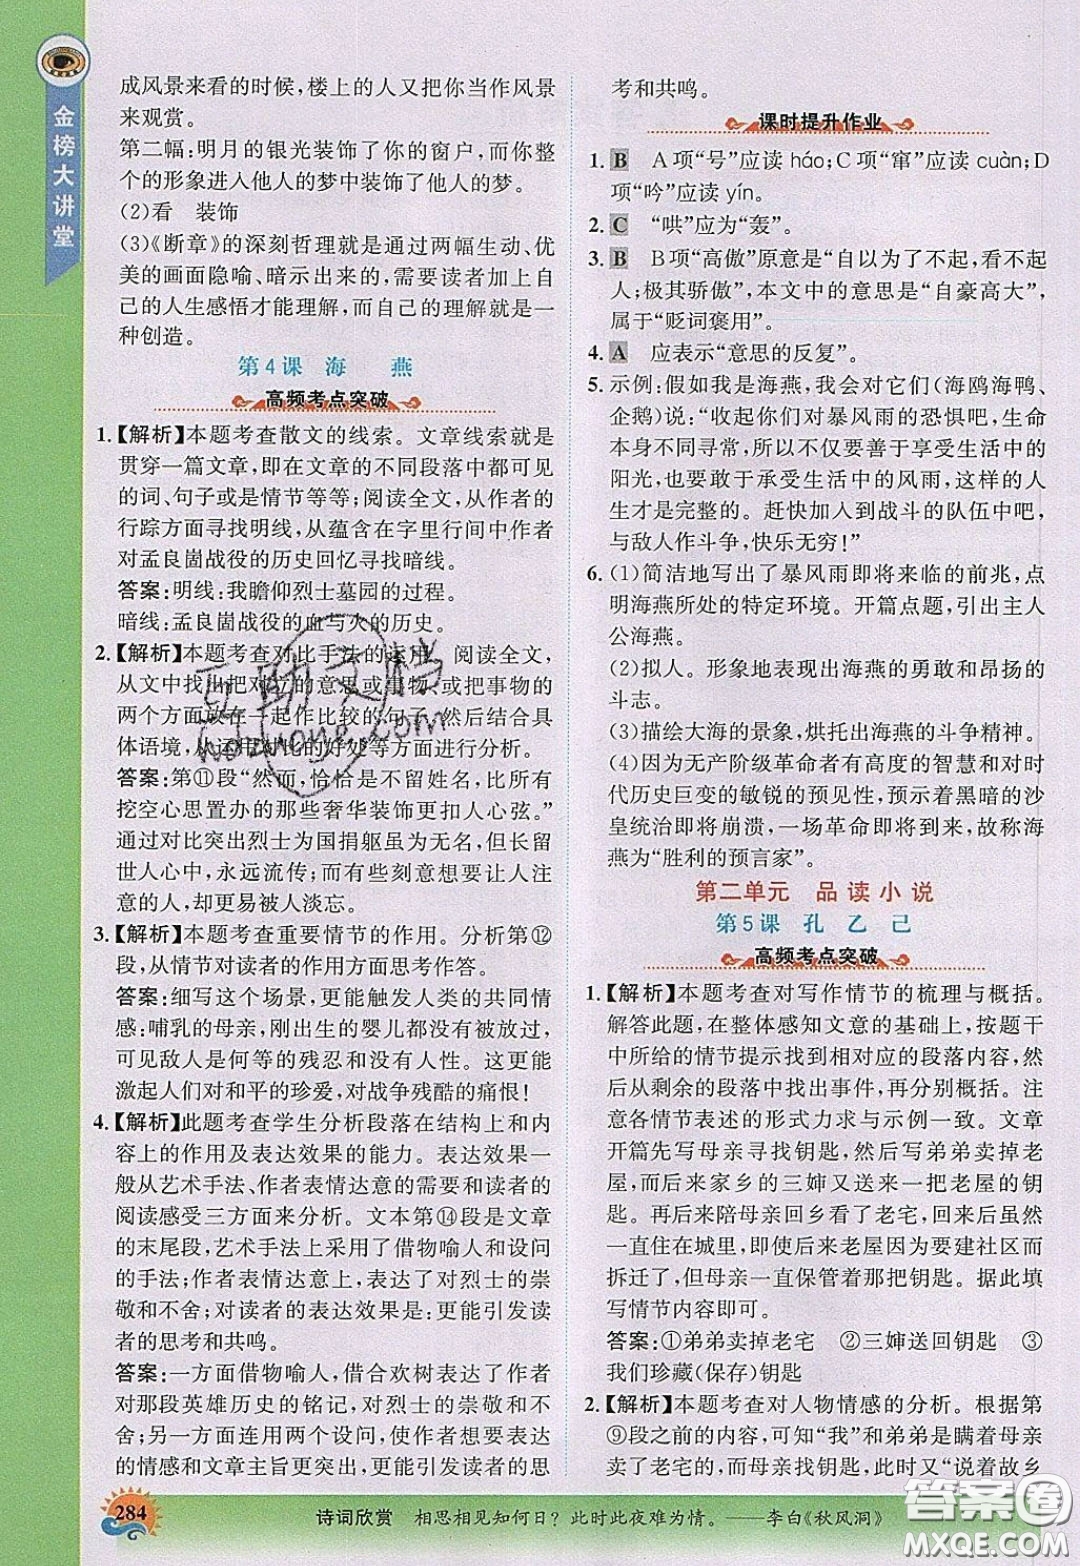 金榜大讲堂
成风景来看的时候,楼上的人又把你当作风景
来观赏。
第二幅:明月的银光装饰了你的窗户,而你整
个的形象进入他人的梦中装饰了他人的梦。
(2)看　装饰
(3)《断章》的深刻哲理就是通过两幅生动、优
美的画面隐喻、暗示出来的,需要读者加上自
己的人生感悟才能理解,而自己的理解就是一
种创造。
第4课　海　燕
高频考点突破
1.【解析】本题考查散文的线索。文章线索就是
贯穿一篇文章,即在文章的不同段落中都可见
的词、句子或是情节等等;阅读全文,从作者的
行踪方面寻找明线,从蕴含在字里行间中作者
对孟良崮战役的历史回忆寻找暗线。
答案:明线:我瞻仰烈士墓园的过程。
暗线:孟良崮战役的血与火的历史。
2.【解析】本题考查对比手法的运用。阅读全文,
从文中找出把对立的意思或事物、或把事物的
两个方面放在一起作比较的句子,然后结合具
体语境,从运用对比的好处等方面进行分析。
答案:第⑪段“然而,恰恰是不留姓名,比所有
挖空心思置办的那些奢华装饰更扣人心弦。”
通过对比突出烈士为国捐躯虽为无名,但长留
世人心中,永远流传;而有些刻意想要让人注
意的,却更易被人淡忘。
3.【解析】本题考查重要情节的作用。分析第⑫
段,从情节对读者的作用方面思考作答。
答案:细写这个场景,更能触发人类的共同情
感:哺乳的母亲,刚出生的婴儿都没有放过,
可见敌人是何等的残忍和没有人性。这更能
激起人们对和平的珍爱,对战争残酷的痛恨!
4.【解析】此题考查学生分析段落在结构上和内
容上的作用及表达效果的能力。表达效果一
般从艺术手法、作者表情达意的需要和读者的
阅读感受三方面来分析。文本第⑭段是文章
的末尾段,艺术手法上采用了借物喻人和设问
的手法;作者表情达意上,表达了对烈士的崇
敬和不舍;对读者的表达效果是:更能引发读
者的思考和共鸣。
答案:一方面借物喻人,借合欢树表达了作者
对那段英雄历史的铭记,对烈士的崇敬和不
舍;另一方面两个设问,使作者所想要表达
的情感和文章主旨更突出,更能引发读者的思
考和共鸣。
课时提升作业
1. B　A项“号”应读háo;C项“窜”应读cuàn;D
项“吟”应读yín。
2. C　“哄”应为“轰”。
3. B　B项“高傲”原意是“自以为了不起,看不起
人;极其骄傲”,本文中的意思是“自豪高大”,
属于“贬词褒用”。
4. A　应表示“意思的反复”。
5. 示例:假如我是海燕,我会对它们(海鸥海鸭、
企鹅)说:“收起你们对暴风雨的恐惧吧,生命
本身不同寻常,所以不仅仅要善于享受生活中的
阳光,也要善于享受生活中的风雨,这样的人
生才是完整的。赶快加入到战斗的队伍中吧,
与敌人作斗争,快乐无穷!”
6. (1)简洁地写出了暴风雨即将来临的前兆,点
明海燕所处的特定环境。开篇点题,引出主人
公海燕。
(2)拟人。形象地表现出海燕的勇敢和昂扬的
斗志。
(3)描绘大海的景象,烘托出海燕的斗争精神。
(4)因为无产阶级革命者有高度的智慧和对时
代历史巨变的敏锐的预见性,预示着黑暗的沙
皇统治即将崩溃,一场革命即将到来,故称海
燕为“胜利的预言家”。
第二单元　品读小说
第5课　孔乙己
高频考点突破
1.【解析】本题考查对写作情节的梳理与概括。
解答此题,在整体感知文意的基础上,按题干
中所给的情节提示找到相对应的段落内容,然
后从剩余的段落中找出事件,再分别概括。注
意各情节表述的形式力求与示例一致。文章
开篇先写母亲寻找钥匙,然后写弟弟卖掉老
屋,后来家乡的三婶又送来一把老屋的钥
匙。再后来陪母亲回乡看了老宅,回来后虽然
一直住在城里,即使后来老屋因为要建社区而
拆迁了,但母亲一直保管着那把钥匙。据此填
写情节内容即可。
答案:①弟弟卖掉老宅　②三婶送回钥匙　③
我们珍藏(保存)钥匙
2.【解析】本题考查对人物情感的分析。根据第
⑨段之前的内容,可知“我”和弟弟是瞒着母亲
卖了老宅的,而母亲却不知,而现又“说着故乡
284
诗词欣赏　相思相见知何日?此时此夜难为情。——李白《秋风词》
互助文档
hdzuoye.com
答案圈
MXQE.COM